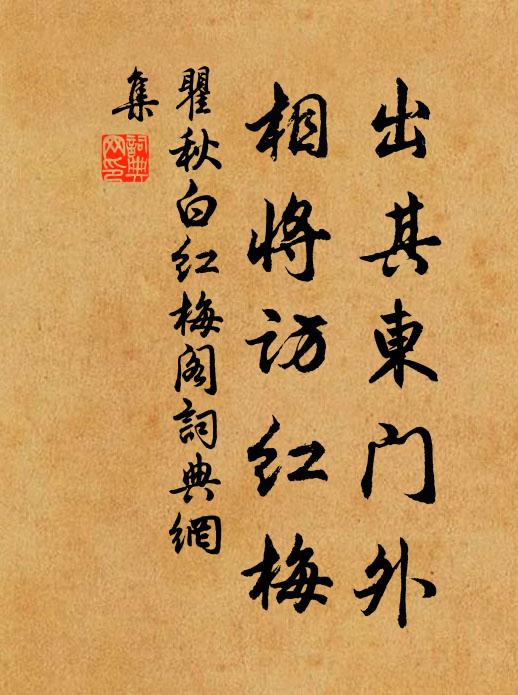 出其東门外
相将访红梅
瞿秋白红梅阁詞典網
集
詞典网印